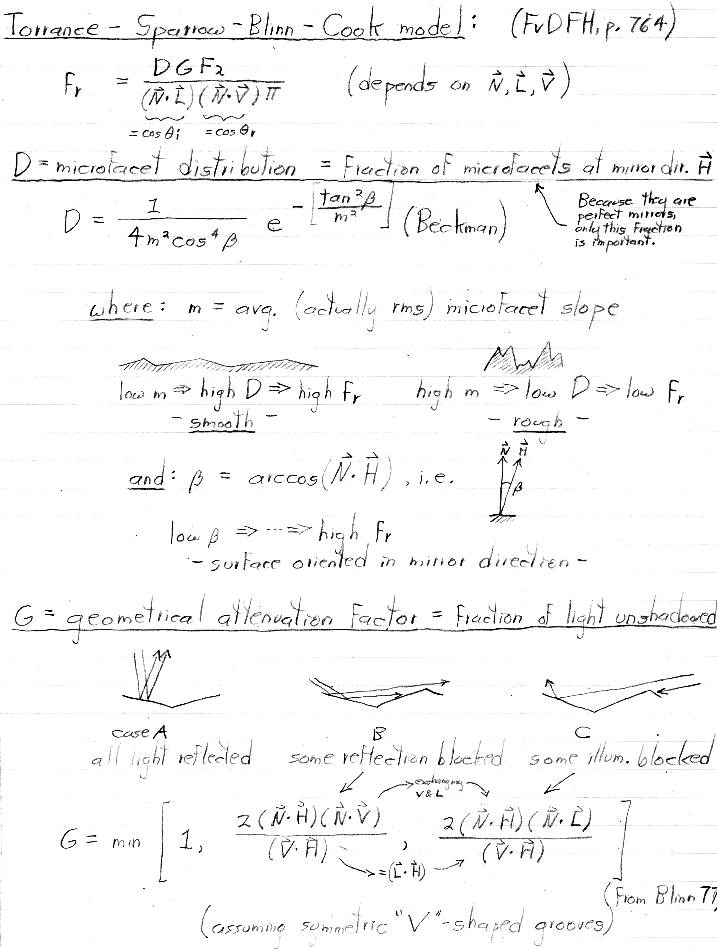 Torrance - Sparrow - Blinn - Cook model: (FvDFH, p. 764)
Fr = DGFλ / (N⃗·L⃗)(N⃗·V⃗)π (depends on N⃗, L⃗, V⃗)
=cos θi =cos θr
D = microfacet distribution = fraction of microfacets at mirror dir. H⃗
Because they are
perfect mirrors,
only this fraction
is important.
D = 1 / 4m²cos⁴β e^-[tan²β / m²] (Beckman)
where: m = avg. (actually rms) microfacet slope
low m => high D => high Fr high m => low D => low Fr
- smooth - - rough -
N⃗ H⃗
and: β = arccos(N⃗·H⃗), i.e.
β
low β => ... => high Fr
- surface oriented in mirror direction -
G = geometrical attenuation factor = fraction of light unshadowed
case A B C
all light reflected some reflection blocked some illum. blocked
exchanging
V & L
G = min [ 1, 2(N⃗·H⃗)(N⃗·V⃗) / (V⃗·H⃗) , 2(N⃗·H⃗)(N⃗·L⃗) / (V⃗·H⃗) ]
=(L⃗·H⃗)
(From Blinn 77)
(assuming symmetric "V"-shaped grooves)